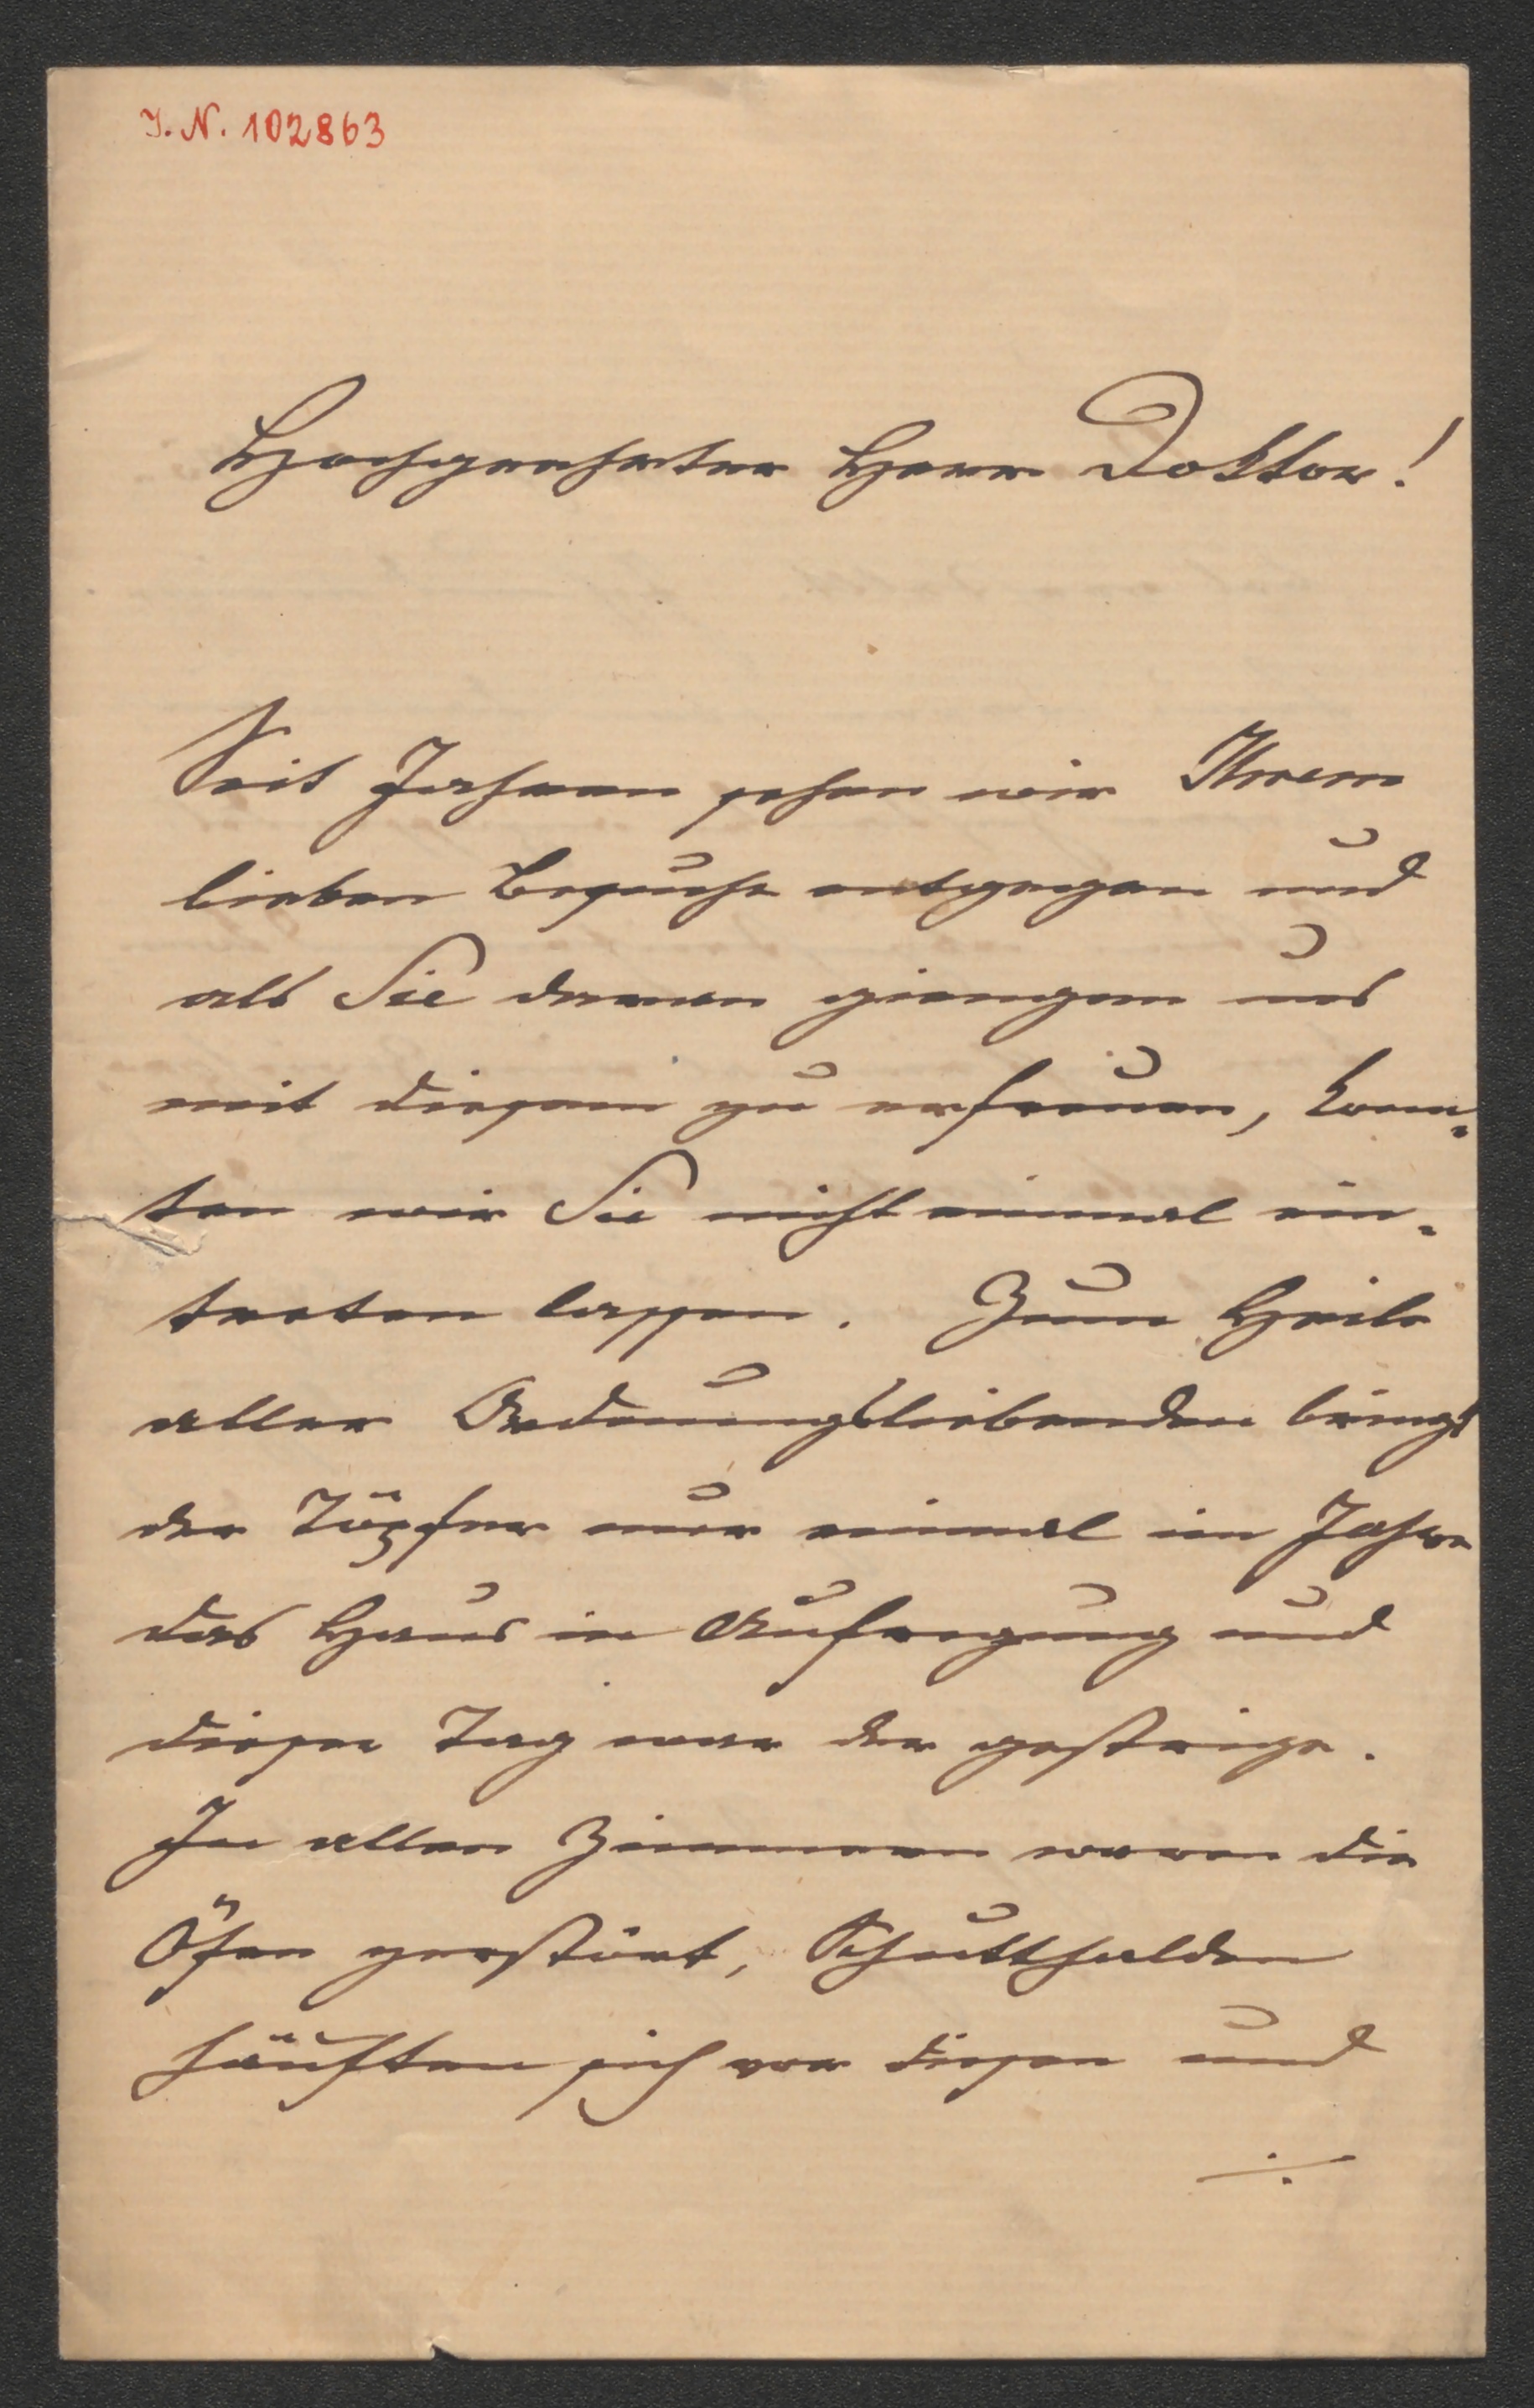 J. N. 102863
Hochgeehrter Herr Doktor!
Seit Jahren sehen wir Ihrem
lieben Besuche entgegen und
als Sie daran giengen uns
mit diesem zu erfreuen, konn=
ten wir Sie nicht einmal ein=
treten lassen. Zum Heile
aller Ordnungsliebenden bringt
der Töpfer nur einmal im Jahre
das Haus in Aufregung und
dieser Tag war der gestrige.
In allen Zimmern waren die
Öfen zerstört, Schutthalden
häuften sich vor diesen und
./.